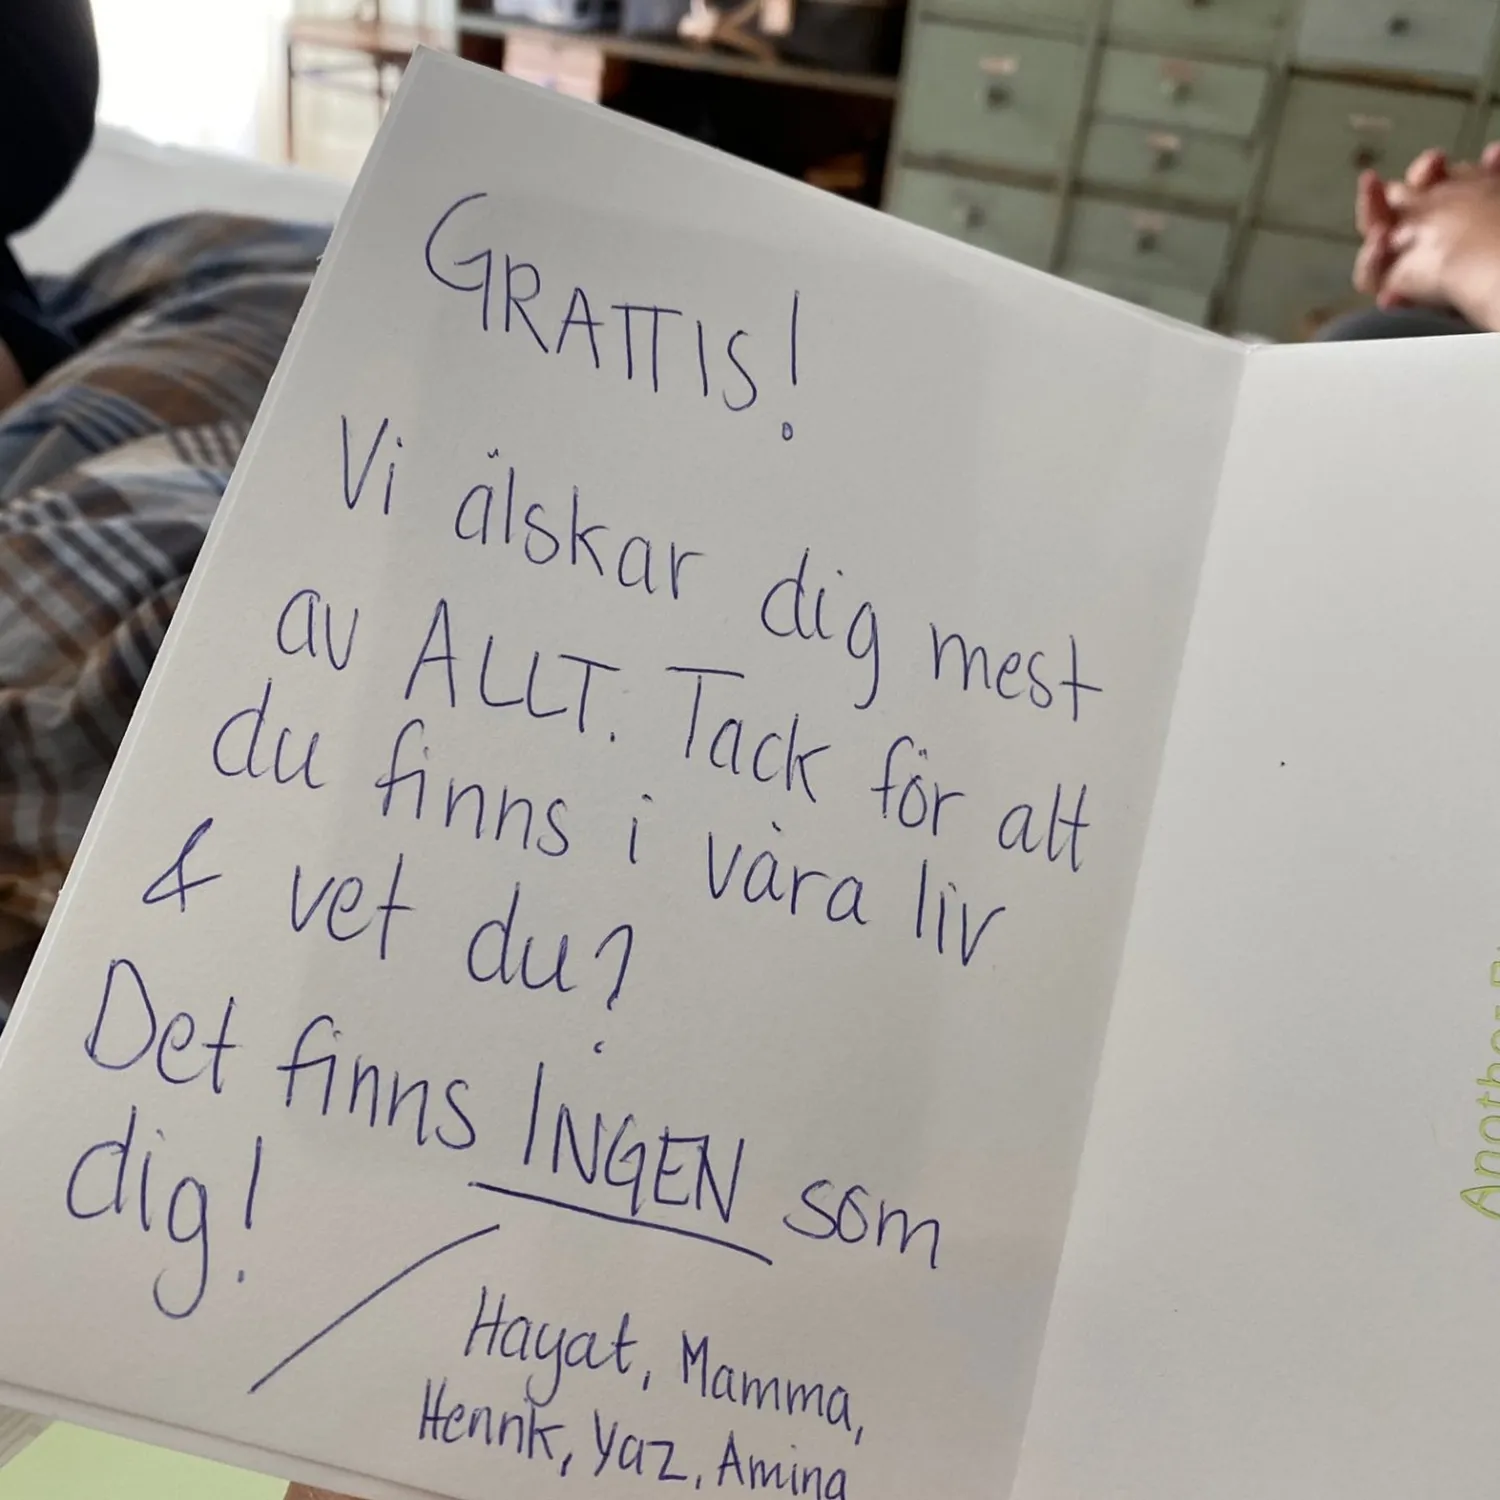 GRATTIS!
Vi älskar dig mest
av ALLT. Tack för att
du finns i våra liv
& vet du?
Det finns INGEN som
dig!
Hayat, Mamma,
Henrik, Yaz, Amina